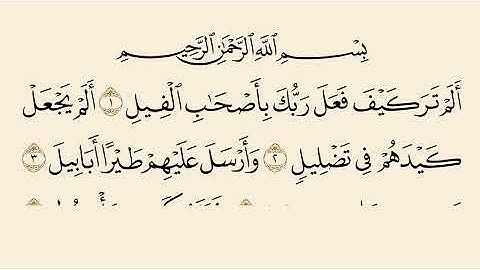 بِسْمِ اللَّهِ الرَّحْمَٰنِ الرَّحِيمِ
أَلَمْ تَرَ كَيْفَ فَعَلَ رَبُّكَ بِأَصْحَابِ الْفِيلِ ١ أَلَمْ يَجْعَلْ
كَيْدَهُمْ فِي تَضْلِيلٍ ٢ وَأَرْسَلَ عَلَيْهِمْ طَيْرًا أَبَابِيلَ ٣